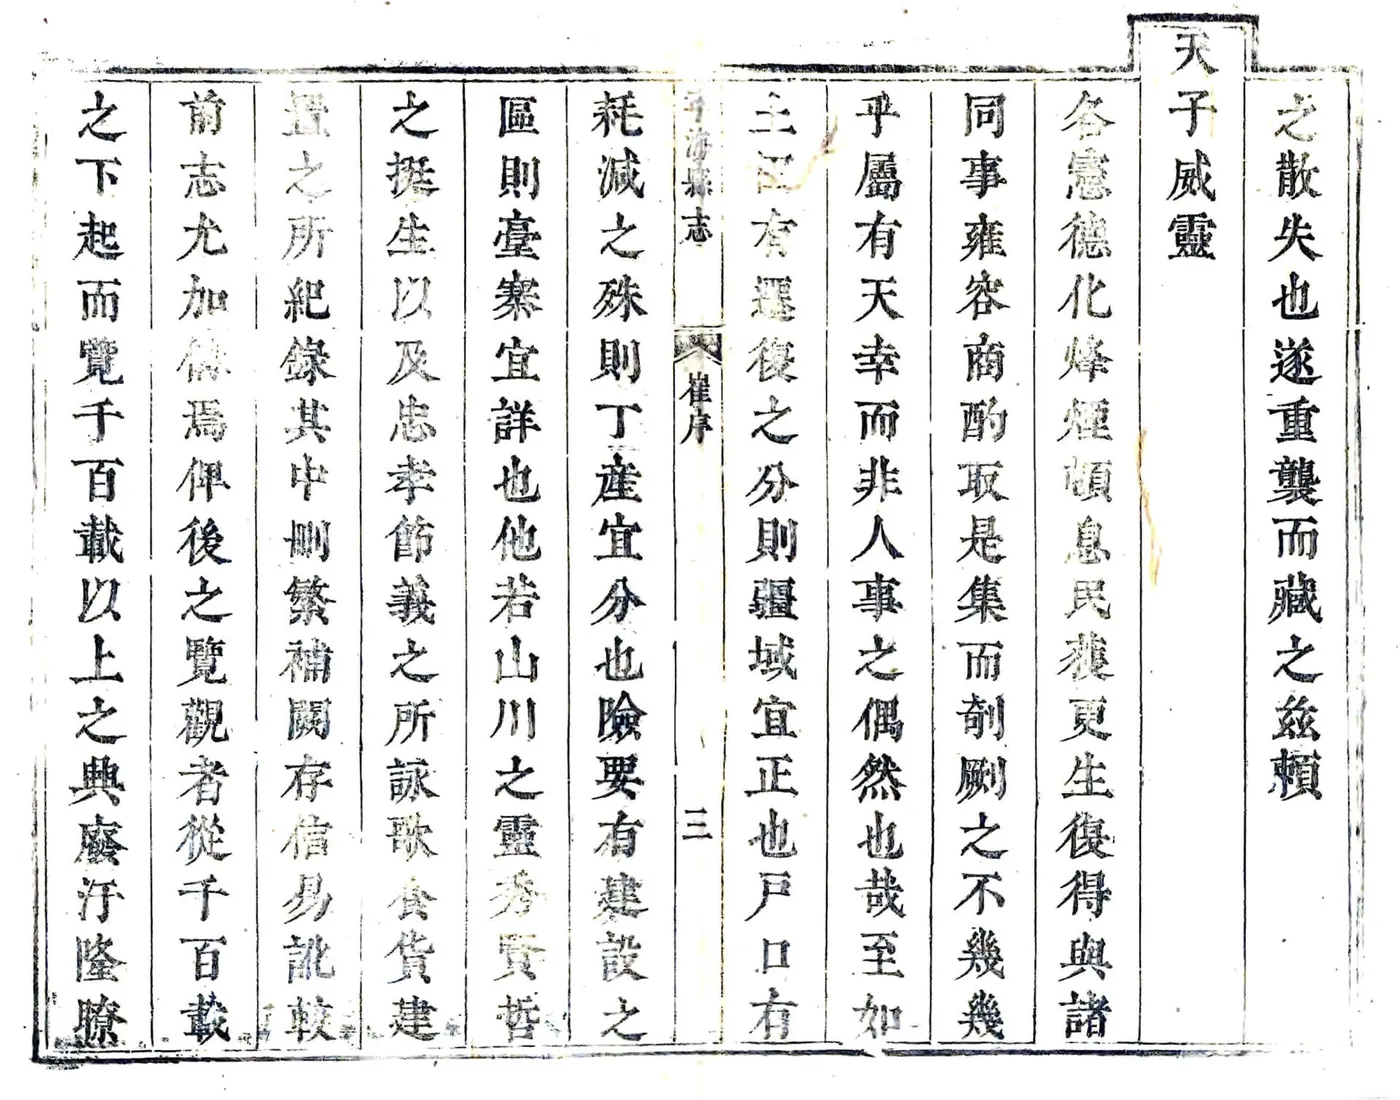 之散失也遂重襲而藏之茲賴
天子威靈
各憲德化烽煙頓息民獲更生復得與諸
同事雍容商酌取是集而剞劂之不幾幾
乎屬有天幸而非人事之偶然也哉至如
土有遷復之分則疆域宜正也戶口有
海縣志
崔序
三
耗減之殊則丁產宜分也險要有建設之
區則臺寨宜詳也他若山川之靈秀賢哲
之挺生以及忠孝節義之所詠歌食貨建
置之所紀錄其中刪繁補闕存信易訛較
前志尤加備焉俾後之覽觀者從千百載
之下起而覽千百載以上之典廢汙隆瞭